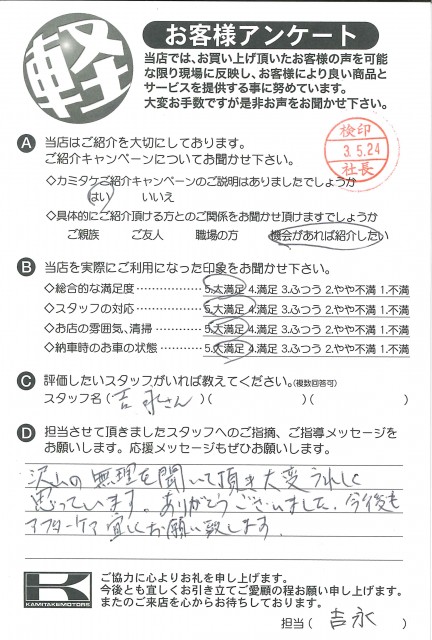 軽
お客様アンケート
当店では、お買い上げ頂いたお客様の声を可能
な限り現場に反映し、お客様により良い商品と
サービスを提供する事に努めています。
大変お手数ですが是非お声をお聞かせ下さい。
検印
3.5.24
社長
A 当店はご紹介を大切にしております。
ご紹介キャンペーンについてお聞かせ下さい。
◇カミタケご紹介キャンペーンのご説明はありましたでしょうか
はい いいえ
◇具体的にご紹介頂ける方とのご関係をお聞かせ頂けますでしょうか
ご親族 ご友人 職場の方 機会があれば紹介したい
B 当店を実際にご利用になった印象をお聞かせ下さい。
◇総合的な満足度‥‥‥‥‥ 5.大満足 4.満足 3.ふつう 2.やや不満 1.不満
◇スタッフの対応‥‥‥‥‥ 5.大満足 4.満足 3.ふつう 2.やや不満 1.不満
◇お店の雰囲気、清掃‥‥‥ 5.大満足 4.満足 3.ふつう 2.やや不満 1.不満
◇納車時のお車の状態‥‥‥ 5.大満足 4.満足 3.ふつう 2.やや不満 1.不満
C 評価したいスタッフがいれば教えてください。(複数回答可)
スタッフ名(吉永さん)( )( )
D 担当させて頂きましたスタッフへのご指摘、ご指導メッセージを
お願いします。応援メッセージもぜひお願いします。
沢山の無理を聞いて頂き大変うれしく
思っています。ありがとうございました。今後も
アフターケア宜しくお願い致します。
K
KAMITAKEMOTORS
ご協力に心よりお礼を申し上げます。
今後とも宜しくお引き立てご愛顧の程お願い申し上げます。
またのご来店を心からお待ちしております。
担当( 吉永 )